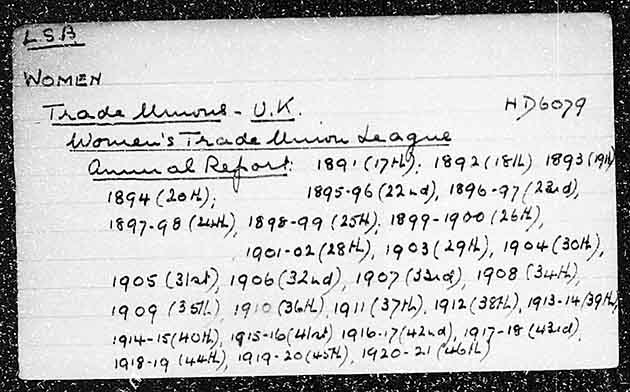 LSB
WOMEN
Trade Unions - U.K. HD6079
Women's Trade Union League
Annual Report: 1891 (17th); 1892 (18th) 1893 (19th)
1894 (20th); 1895-96 (22nd), 1896-97 (23rd),
1897-98 (24th), 1898-99 (25th). 1899-1900 (26th),
1901-02 (28th), 1903 (29th), 1904 (30th),
1905 (31st), 1906 (32nd), 1907 (33rd), 1908 (34th),
1909 (35th), 1910 (36th), 1911 (37th), 1912 (38th), 1913-14 (39th),
1914-15 (40th), 1915-16 (41st) 1916-17 (42nd), 1917-18 (43rd)
1918-19 (44th), 1919-20 (45th), 1920-21 (46th)